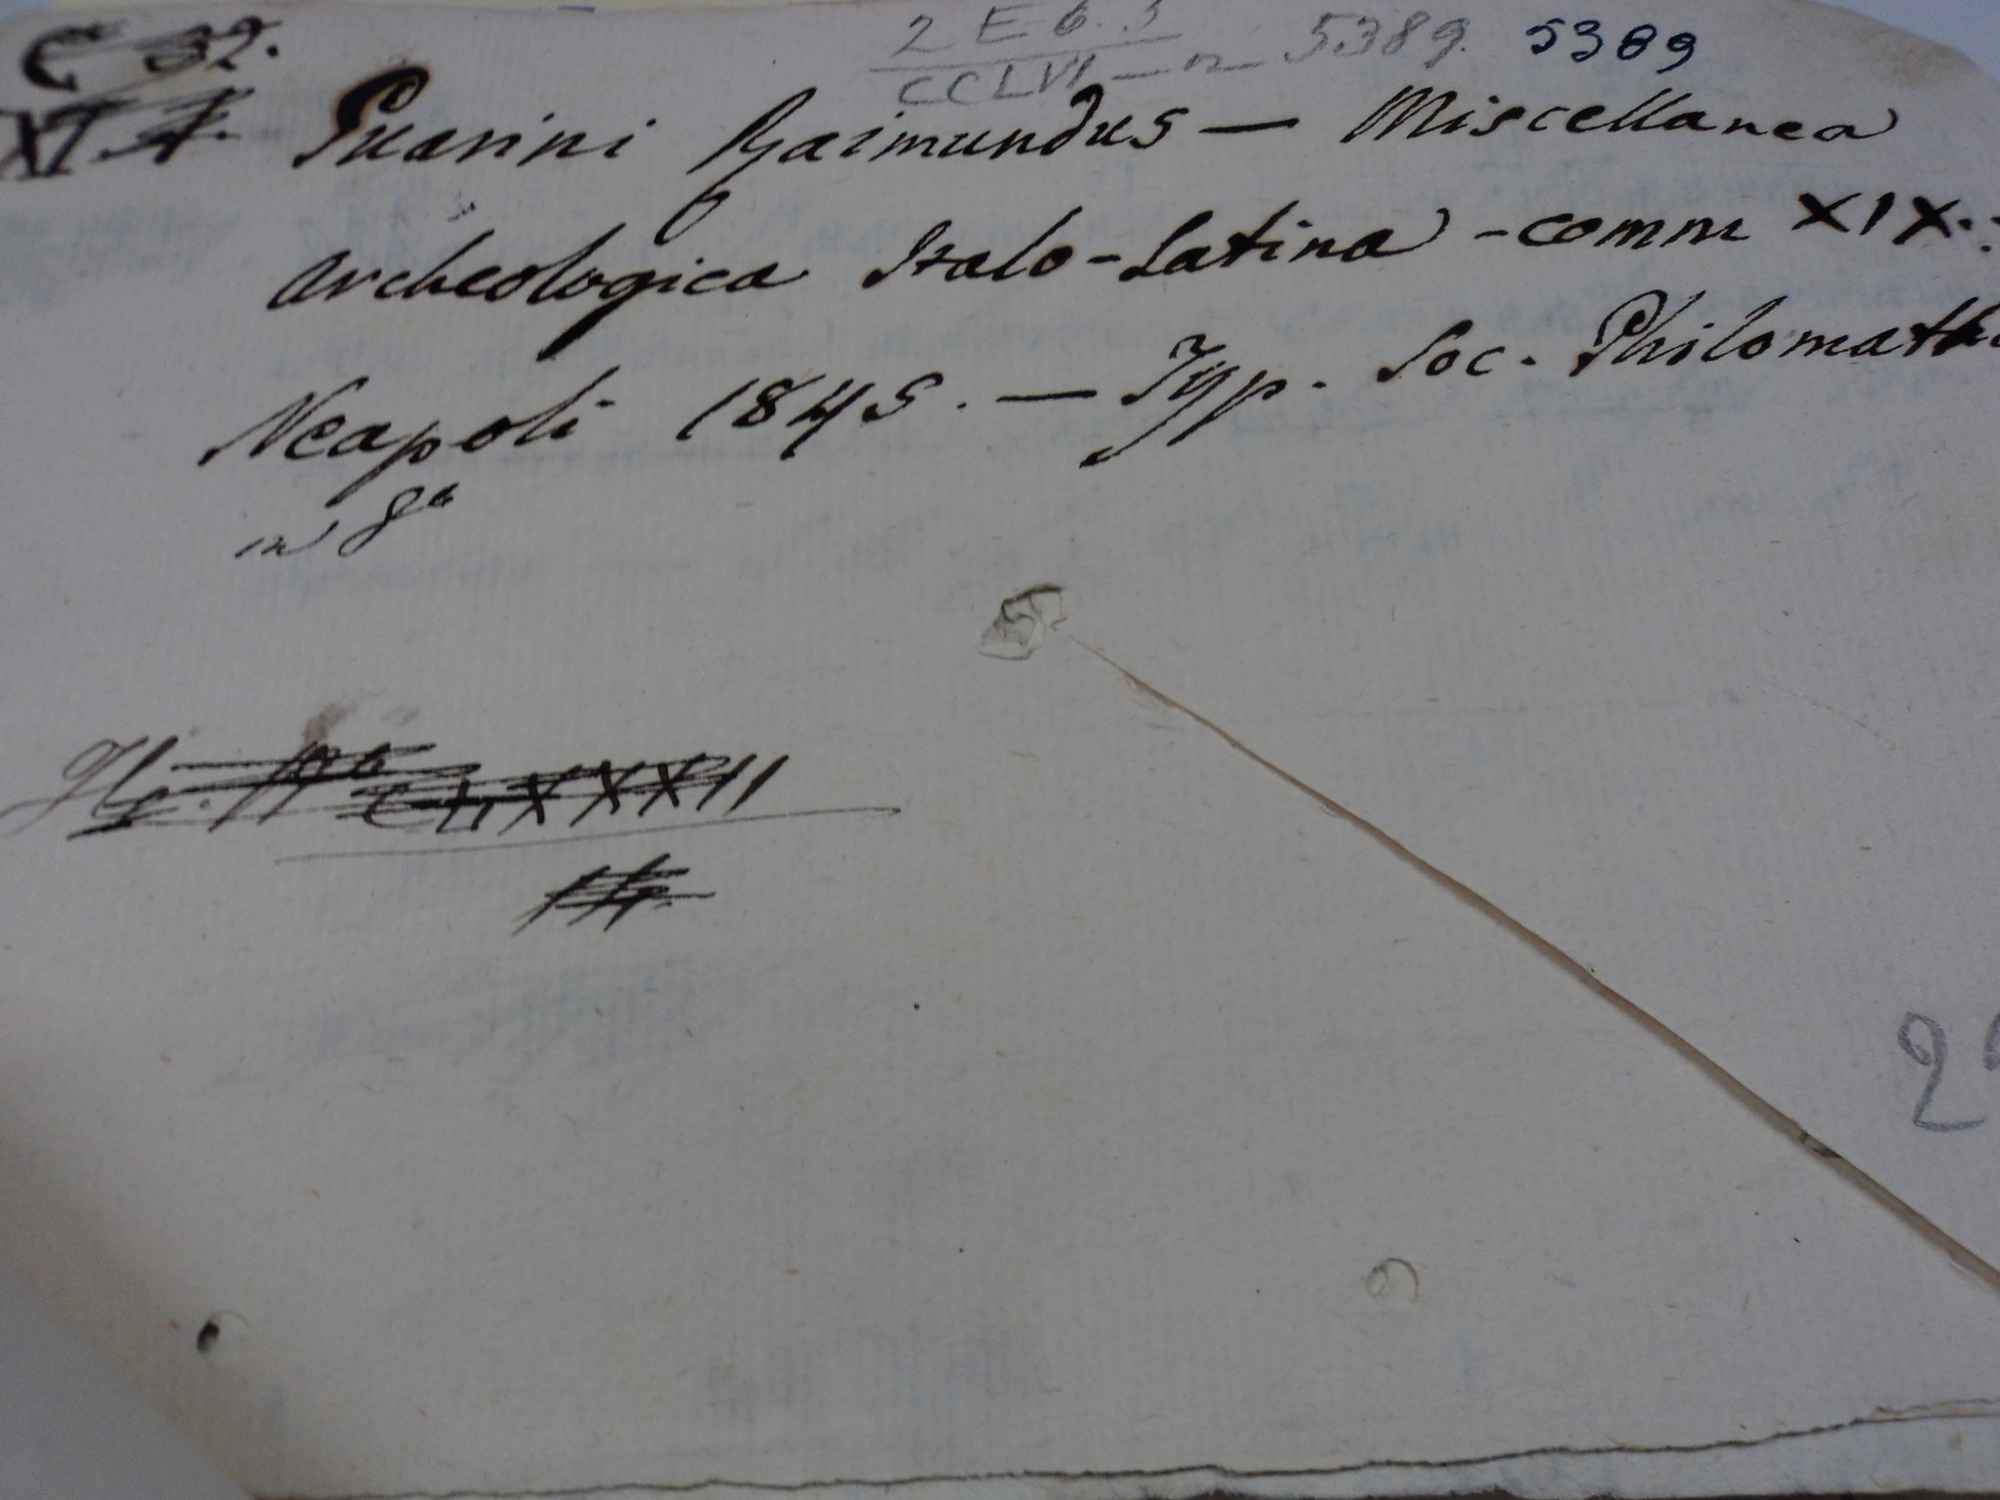 C 32.
2 E 6. 5
CCLVI — n 5389. 5389
XI
Guarini Raimundus — Miscellanea
Archeologica Italo-Latina - comm XIX.
Neapoli 1845. — Typ. Soc. Philomath
in 8°
CLXXXII
2